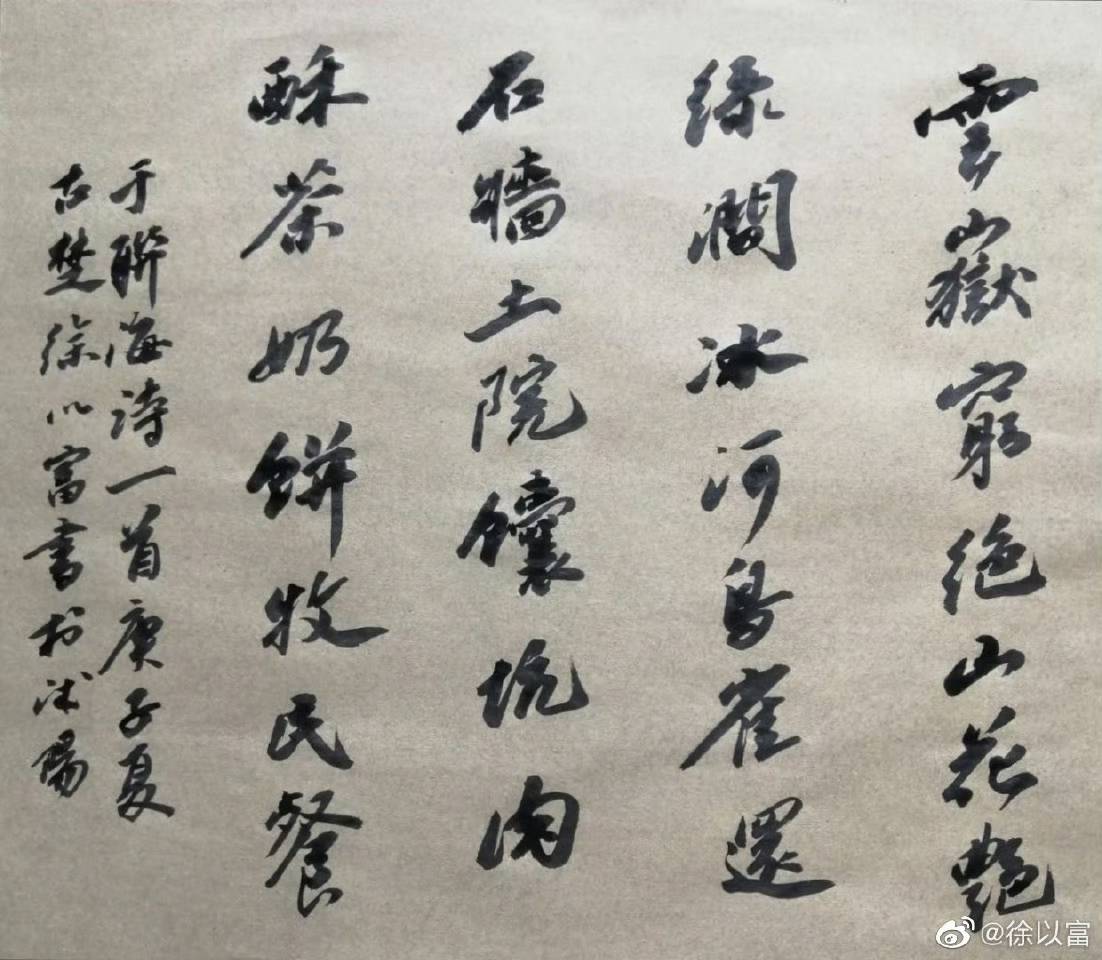 雲嶽窮絕山花艷
綠澗冰河鳥雀還
石牆土院饢坑肉
酥茶奶餅牧民餐
于聯海詩一首庚子夏
古楚徐以富書於沭陽
@徐以富